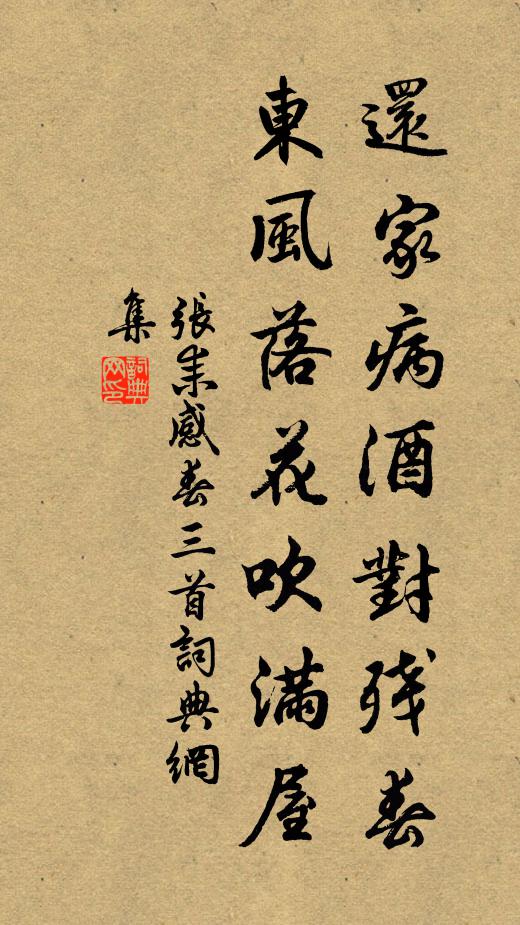 還家病酒對殘春
東風落花吹滿屋
張耒感春三首詞典網
集
詞典網印